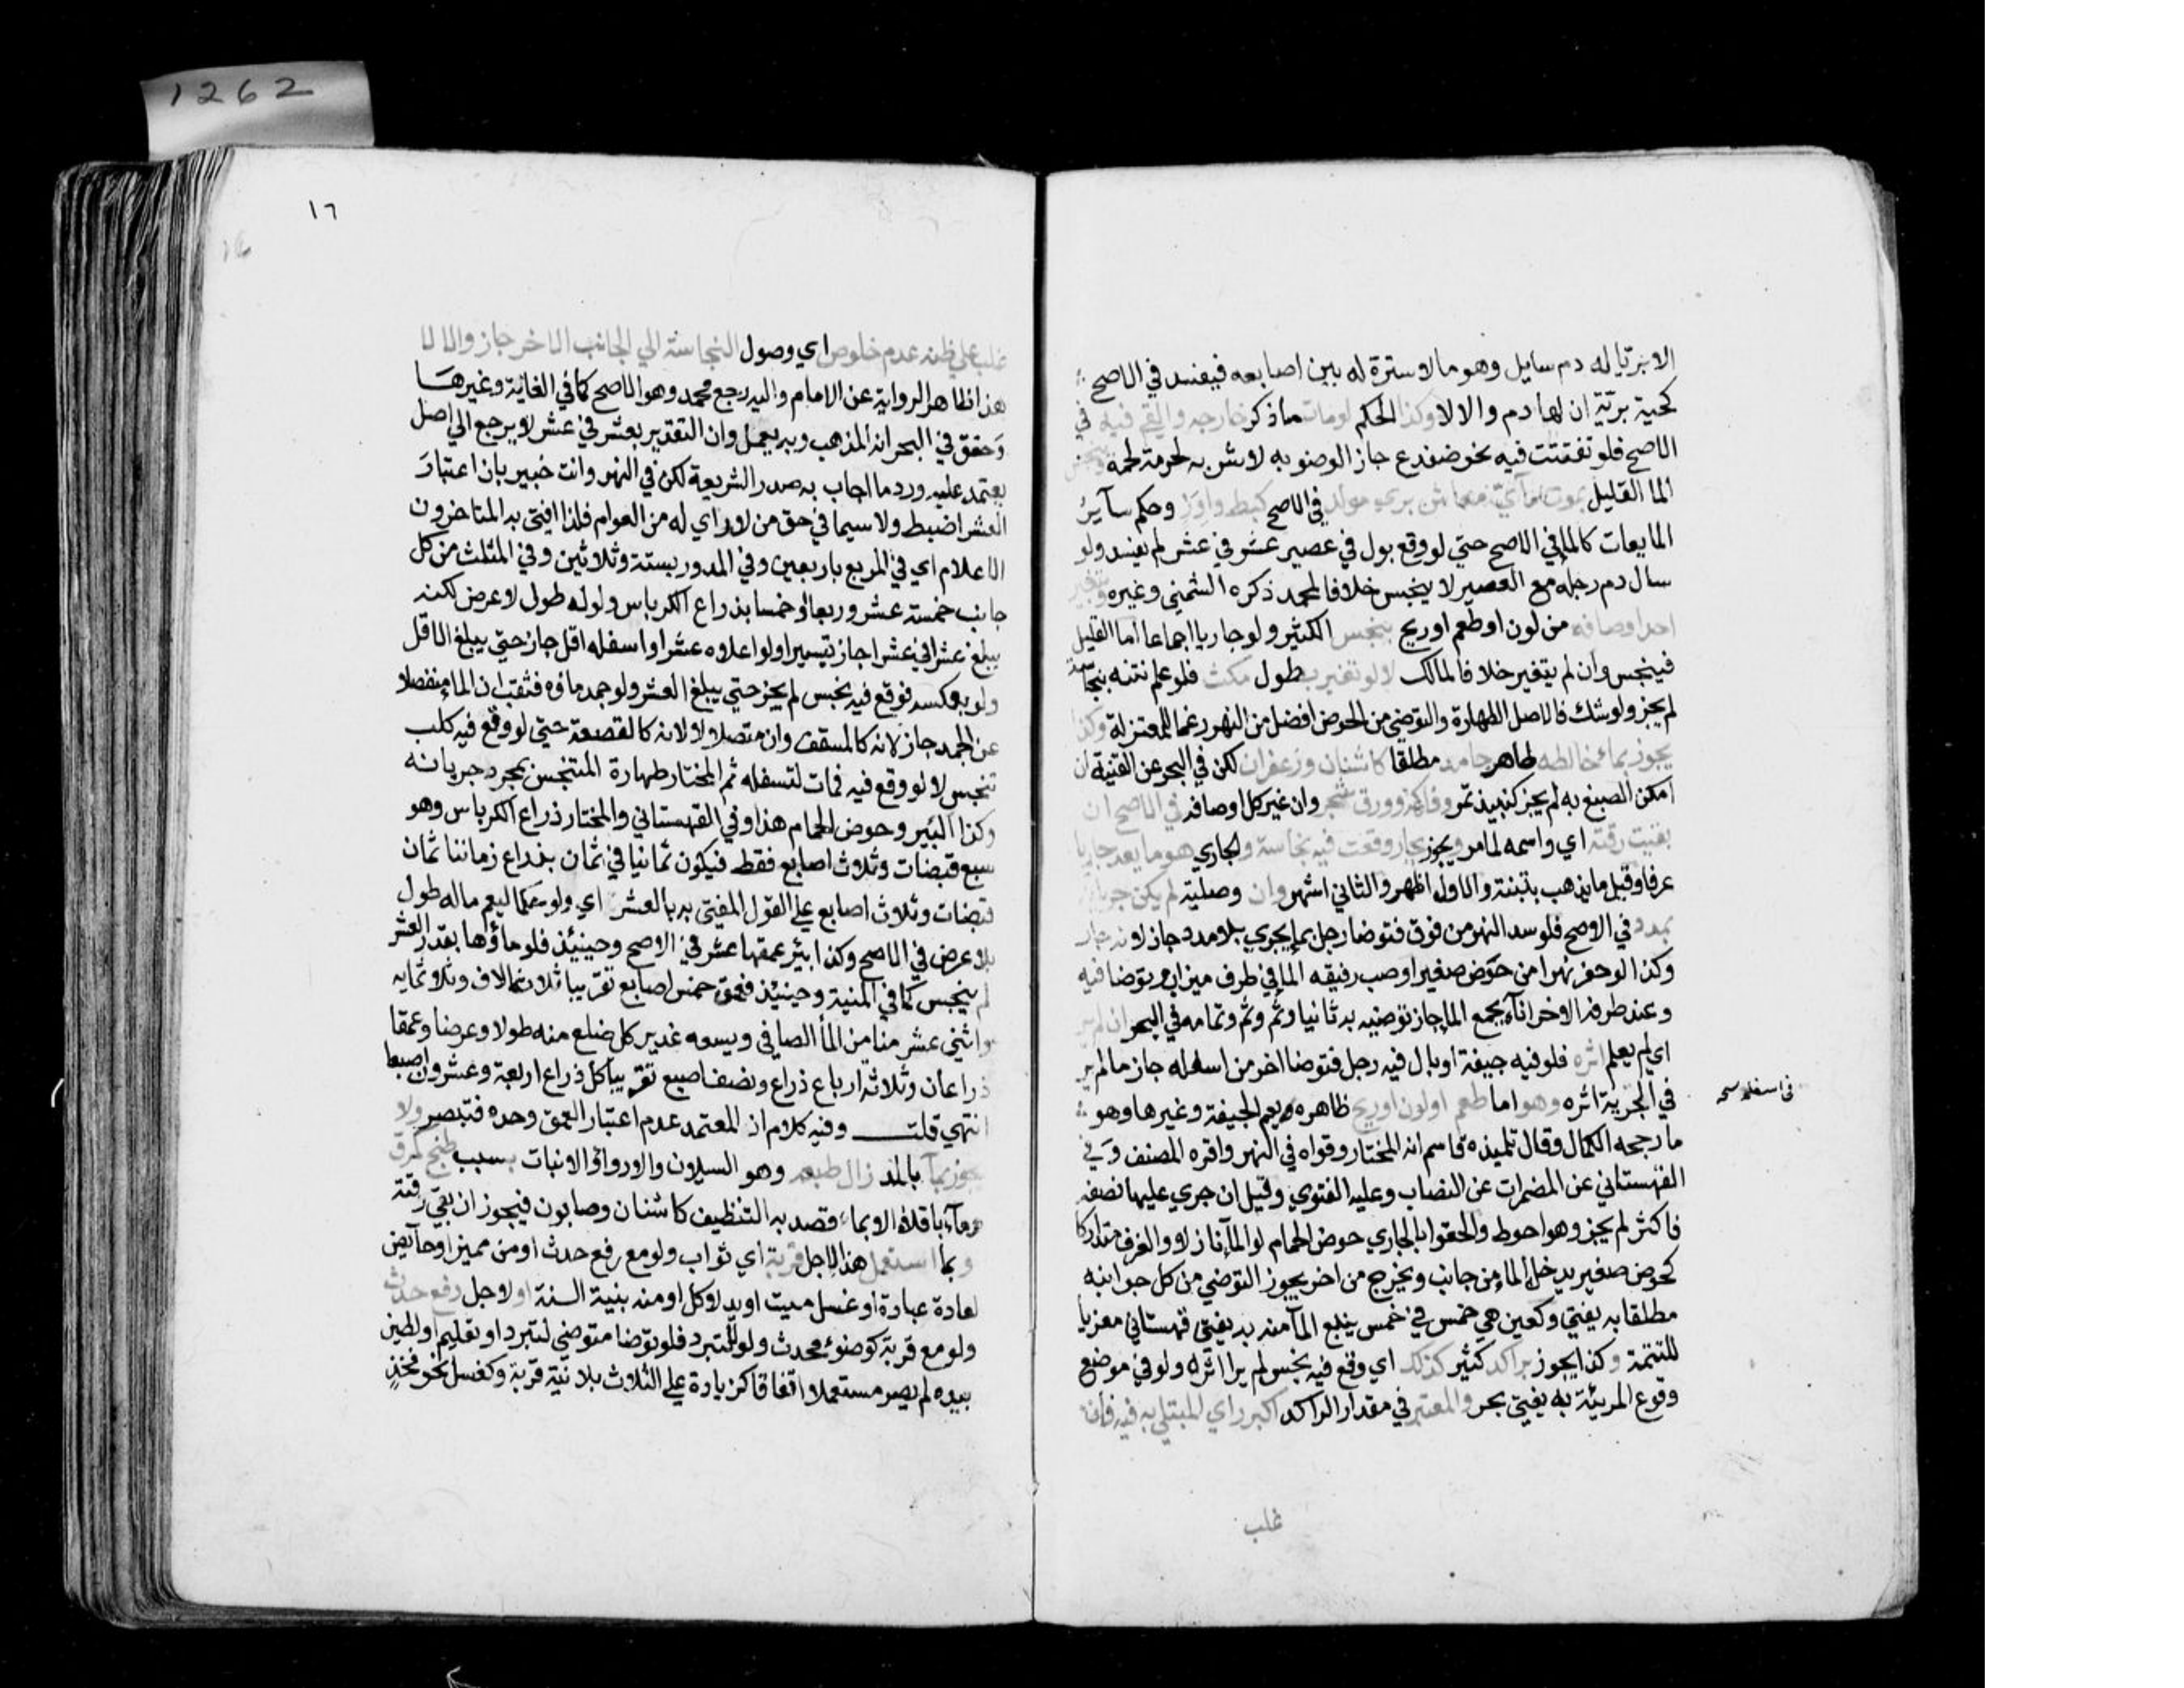 الا بريا له دم سايل وهو ما لا سترة له بين اصابعه فيفسد في الاصح
كحية برية ان لها دم والا لا وكذا الحكم لو مات ما ذكر خارجه والقي فيه في
الاصح فلو تفتتت فيه نحو ضفدع جاز الوضو به لا شربه لحرمة لحمه وينجس
الما القليل بموت مآئي معاش بري مولد في الاصح كبط واوز وحكم سآير
المايعات كالما في الاصح حتي لو وقع بول في عصير عشر في عشر لم يفسد ولو
سال دم رجله مع العصير لا ينجس خلافا لمحمد ذكره الشمني وغيره وبتغير
احد اوصافه من لون او طعم او ريح ينجس الكثير ولو جاريا اجماعا اما القليل
فينجس وان لم يتغير خلافا لمالك لا لو تغير بطول مكث فلو علم نتنه بنجاسة
لم يجز ولو شك فالاصل الطهارة والتوضي من الحوض افضل من النهر رغما للمعتزلة وكذا
يجوز بماء خالطه طاهر جامد مطلقا كاشنان وزعفران لكن في البحر عن القنية ان
امكن الصبغ به لم يجز كنبيذ تمر وفاكهة وورق شجر وان غير كل اوصافه في الاصح ان
بقيت رقته اي واسمه لما مر ويجوز بجار وقعت فيه نجاسة والجاري هو ما يعد جاريا
عرفا وقيل ما يذهب بتبنة والاول اظهر والثاني اشهر وان وصلية لم يكن جريانه
بمدد في الاوصح فلو سد النهر من فوق فتوضا رجل بما يجري بلا مدد جاز لانه جار
وكذا لو حفر نهرا من حوض صغير او صب رفيقه الما في طرف ميزاب وتوضا فيه
وعند طرفه الاخر انآء يجمع الما جاز توضيه به ثانيا وثم وثم وتمامه في البحر ان لم ير
اي لم يعلم اثره فلو فيه جيفة او بال فيه رجل فتوضا اخر من اسفله جاز ما لم ير
في الجرية اثره وهو اما طعم او لون او ريح ظاهره يعم الجيفة وغيرها وهو
في اسفله
ما رجحه الكمال وقال تلميذه قاسم انه المختار وقواه في النهر واقره المصنف وفي
القهستاني عن المضمرات عن النصاب وعليه الفتوي وقيل ان جري عليها نصفه
فاكثر لم يجز وهو احوط والحقوا بالجاري حوض الحمام لو المآء نازلا والغرف متدارك
كحوض صغير يدخل الما من جانب ويخرج من اخر يجوز التوضي من كل جوانبه
مطلقا به يفتي وكعين هي خمس في خمس ينبع المآ منه به يفتي قهستاني معزيا
للتتمة وكذا يجوز براكد كثير كذلك اي وقع فيه نجس لم ير اثره ولو في موضع
وقوع المرئية به يفتي بحر والمعتبر في مقدار الراكد اكبر راي المبتلي به فيه فان
غلب
١٦
غلب علي ظنه عدم خلوص اي وصول النجاسة الي الجانب الاخر جاز والا لا
هذا ظاهر الرواية عن الامام واليه رجع محمد وهو الاصح كما في الغاية وغيرها
وحقق في البحر انه المذهب وبه يعمل وان التقدير بعشر في عشر لا يرجع الي اصل
يعتمد عليه ورد ما اجاب به صدر الشريعة لكن في النهر وانت خبير بان اعتبار
العشر اضبط ولا سيما في حق من لا راي له من العوام فلذا افتي به المتاخرون
الاعلام اي في المربع باربعين وفي المدور بستة وثلاثين وفي المثلث من كل
جانب خمسة عشر وربعا او خمسا بذراع الكرباس ولو له طول لا عرض لكنه
يبلغ عشرا في عشر جاز تيسيرا ولو اعلاه عشرا واسفله اقل جاز حتي يبلغ الاقل
ولو بعكسه فوقع فيه نجس لم يجز حتي يبلغ العشر ولو جمد ماؤه فثقب ان الما منفصلا
عن الجمد جاز لانه كالمسقف وان متصلا لا لانه كالقصعة حتي لو وقع فيه كلب
تنجس لا لو وقع فيه فمات لتسفله ثم المختار طهارة المتنجس بمجرد جريانه
وكذا البئير وحوض الحمام هذا وفي القهستاني والمختار ذراع الكرباس وهو
سبع قبضات وثلاث اصابع فقط فيكون ثمانيا في ثمان بذراع زماننا ثمان
قبضات وثلاث اصابع علي القول المفتي به بالعشر اي ولو حكما ليعم ماله طول
بلا عرض في الاصح وكذا بئر عمقها عشر في الاوصح وحينئذ فلو ماؤها بقدر العشر
لم ينجس كما في المنية وحينئذ فعمق خمس اصابع تقريبا ثلاثة الاف وثلاثمايه
واثني عشر منا من المآ الصافي ويسعه غدير كل ضلع منه طولا وعرضا وعمقا
ذراعان وثلاثة ارباع ذراع ونصف اصبع تقريبا كل ذراع اربعة وعشرون اصبعا
انتهي قلت وفيه كلام اذ المعتمد عدم اعتبار العمق وحده فتبصر ولا
يجوز بمآ بالمد زال طبعه وهو السيلان والاروآء والانبات بسبب طبخ كمرق
ومآء باقلاء الا بما قصد به التنظيف كاشنان وصابون فيجوز ان بقي رقته
وبما استعمل هذا لاجل قربة اي ثواب ولو مع رفع حدث او من مميز او حآيض
لعادة عبادة او غسل ميت او يد لاكل او منه بنية السنة او لاجل رفع حدث
ولو مع قربة كوضوء محدث ولو للتبرد فلو توضا متوضي لتبرد او تعليم او لطين
بيده لم يصر مستعملا اتفاقا كزيادة علي الثلاث بلا نية قربة وكغسل نحو فخذ
1262